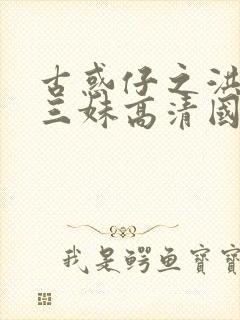 古惑仔之洪
三妹高清國
我是鳄鱼寶寶